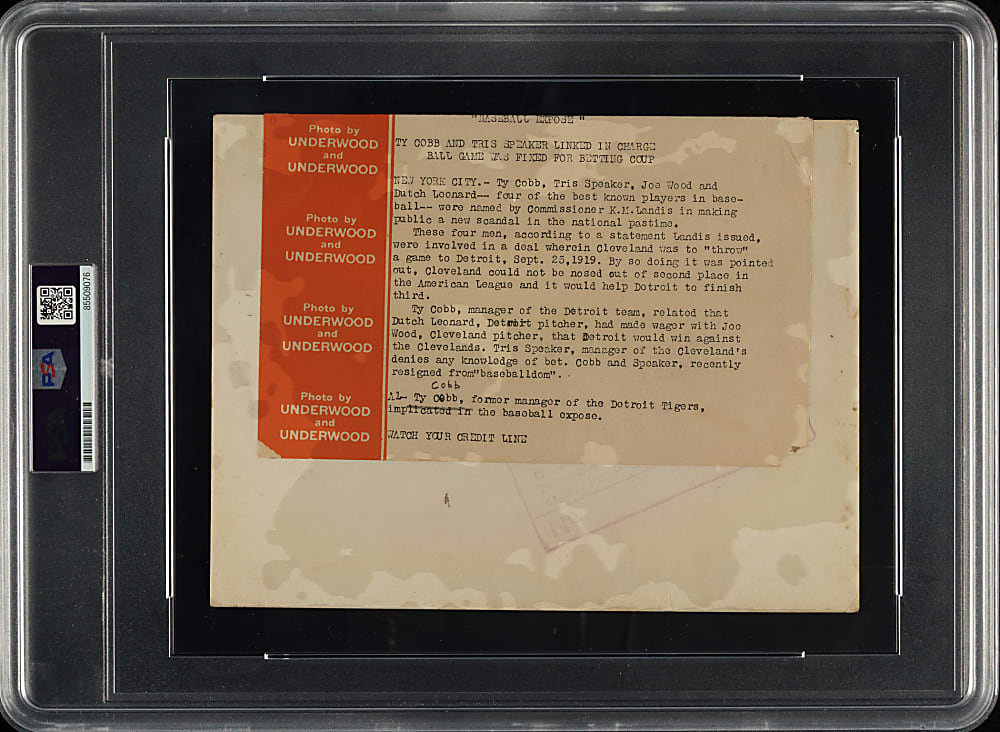 "BASEBALL EXPOSE "
TY COBB AND TRIS SPEAKER LINKED IN CHARGE
BALL GAME WAS FIXED FOR BETTING COUP
NEW YORK CITY.- Ty Cobb, Tris Speaker, Joe Wood and
Dutch Leonard-- four of the best known players in base-
ball-- were named by Commissioner K.M.Landis in making
public a new scandal in the national pastime.
These four men, according to a statement Landis issued,
were involved in a deal wherein Cleveland was to "throw"
a game to Detroit, Sept. 25,1919. By so doing it was pointed
out, Cleveland could not be nosed out of second place in
the American League and it would help Detroit to finish
third.
Ty Cobb, manager of the Detroit team, related that
Dutch Leonard, Detroit pitcher, had made wager with Joe
Wood, Cleveland pitcher, that Detroit would win against
the Clevelands. Tris Speaker, manager of the Cleveland's
denies any knowledge of bet. Cobb and Speaker, recently
resigned from"baseballdom".
Cobb
AL- Ty Cobb, former manager of the Detroit Tigers,
implicated in the baseball expose.
WATCH YOUR CREDIT LINE
Photo by
UNDERWOOD
and
UNDERWOOD
Photo by
UNDERWOOD
and
UNDERWOOD
Photo by
UNDERWOOD
and
UNDERWOOD
Photo by
UNDERWOOD
and
UNDERWOOD
85509076
PSA